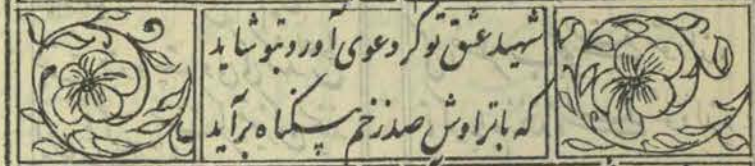 شهید عشق تو گر دعوی آورد بتو شاید
که باتراوش صد زخم بیگناه برآید